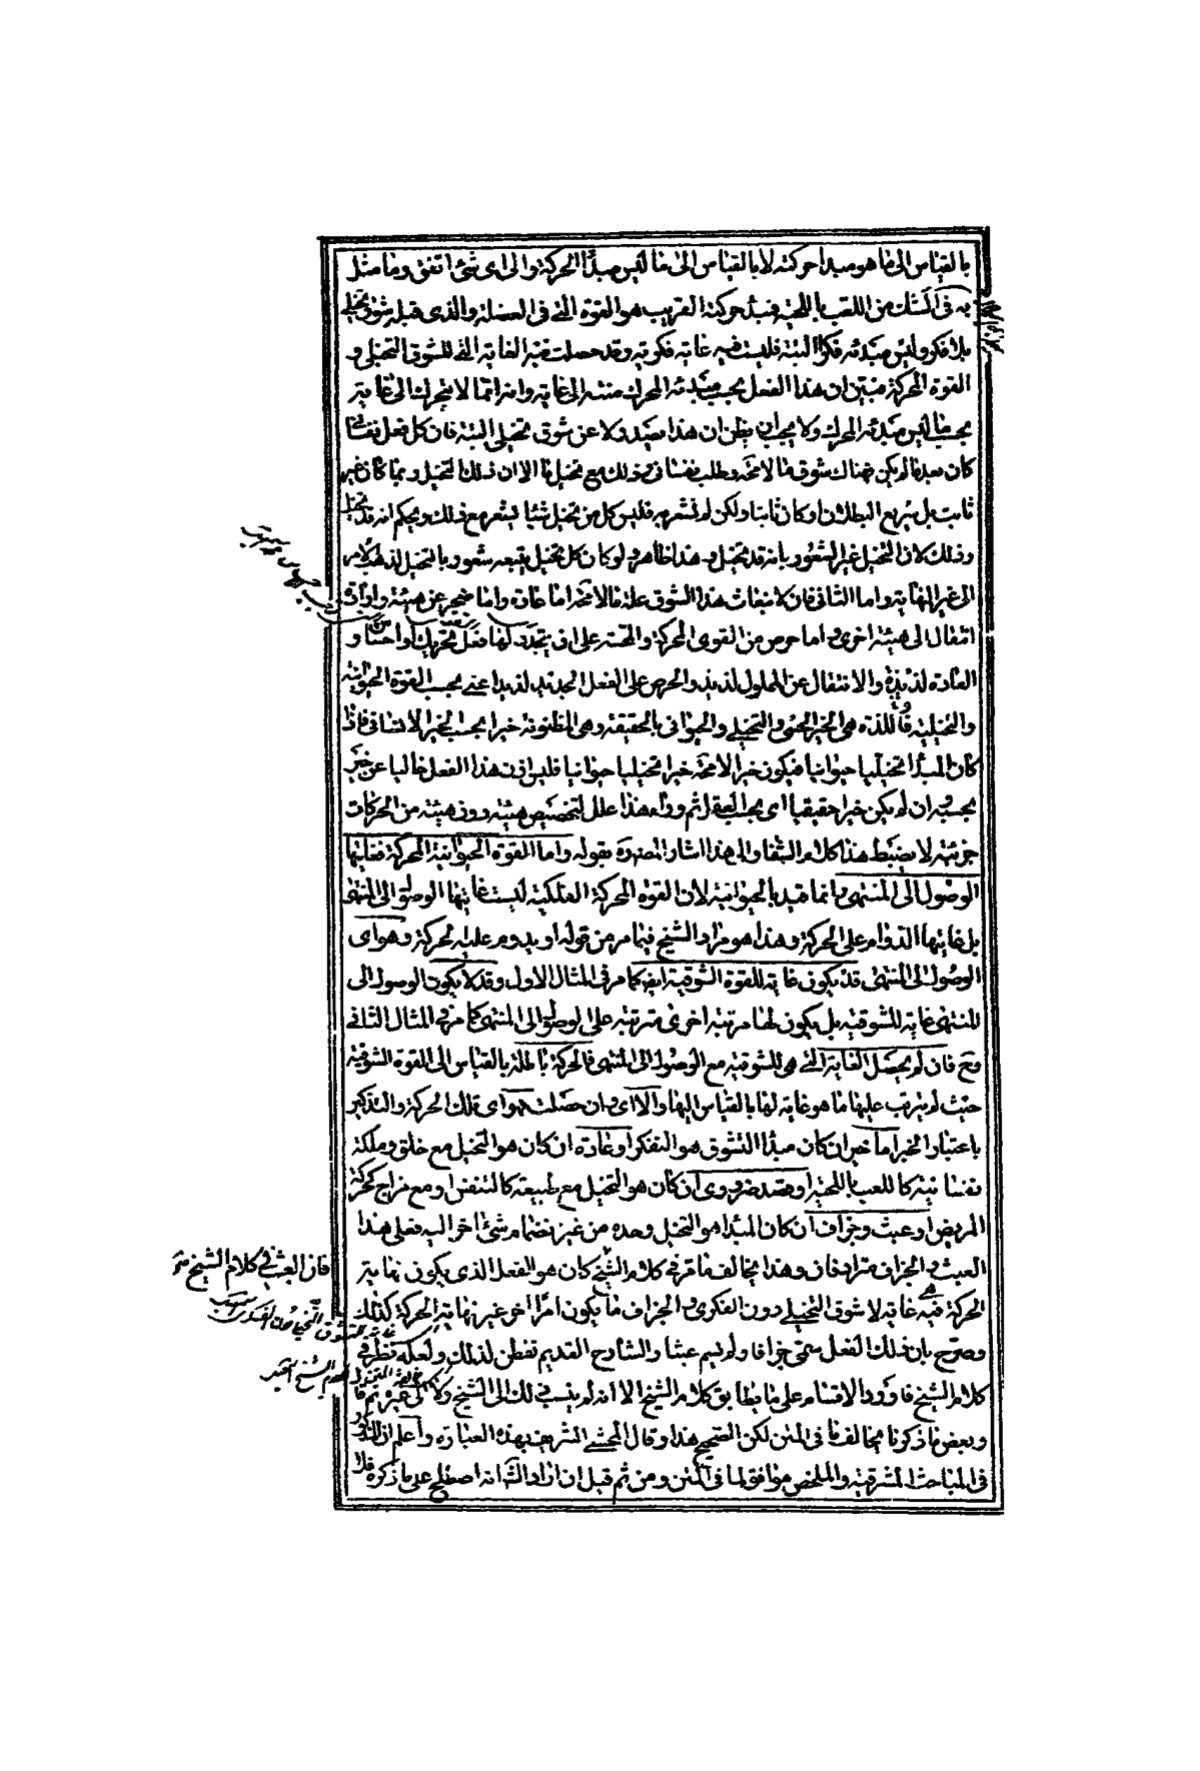 بالقياس الى ما هو مبدا حركته لا بالقياس الى ما ليس مبدأ الحركة والى اى شئ اتفق وما مثل
به فى الشك من اللعب باللحية فمبدأ حركته القريب هو القوة التى فى العضلة والذى قبله شوق تخيلى
بلا فكر وليس مبدئه فكرا البتة فليست فيه غاية فكرية وقد حصلت فيه الغاية التى للشوق التخيلى و
القوة المحركة فتبين ان هذا الفعل بحسب مبدئه المحرك منته الى غاية وانه انما لا يتحرك الى غاية
بحسب ما ليس مبدئه المحرك ولا يجب ان يظن ان هذا يصدر لا عن شوق تخيلى البتة فان كل فعل نفسانى
كان بعد ما لم يكن فهناك شوق ما لا محة وطلب نفسانى وذلك مع تخيل ما الا ان ذلك التخيل ربما كان غير
ثابت بل سريع البطلان او كان ثابتا ولكن لم يشعر به فليس كل من تخيل شيئا يشعر مع ذلك ويحكم انه قد تخيل
وذلك لان التخيل غير الشعور بانه قد تخيل وهذا ظاهر ولو كان كل تخيل يتبعه شعور بالتخيل لذهب الامر
الى غير النهاية واما الثانى فان لانبعاث هذا الشوق علة ما لا محة اما عادة واما ضجر عن هيئة وارادة
انتقال الى هيئة اخرى واما حرص من القوى المحركة والمحسة على ان يتجدد لها فعل تحريك او احساس و
العادة لذيذة والانتقال عن المملول لذيذ والحرص على الفعل الجديد لذيذ اعنى بحسب القوة الحيوانية
والتخيلية واللذة هى الخير الحسى والتخيلى والحيوانى بالحقيقة وهى المظنونة خيرا بحسب الخير الانسانى فاذا
كان المبدأ تخيليا حيوانيا فيكون خيره لا محة خيرا تخيليا حيوانيا فليس اذن هذا الفعل خاليا عن خير
بحسبه وان لم يكن خيرا حقيقيا اى بحسب العقل ثم وراء هذا علل لتخصيص هيئة دون هيئة من الحركات
جزئية لا يضبط هذا كلام الشفا والى هذا اشار المصنف بقوله واما القوة الحيوانية المحركة فغايتها
الوصول الى المنتهى وانما قيد بالحيوانية لان القوة المحركة الفلكية ليست غايتها الوصول الى المنتهى
بل غايتها الدوام على الحركة وهذا هو مراد الشيخ فيما مر من قوله او يدوم عليه لحركة وهو اى
الوصول الى المنتهى قد يكون غاية للقوة الشوقية ايضا كما مر فى المثال الاول وقد لا يكون الوصول الى
المنتهى غاية للشوقية بل يكون لها مرتبة اخرى مترتبة على الوصول الى المنتهى كما مر فى المثال الثانى
وح فان لم يحصل الغاية التى هى للشوقية مع الوصول الى المنتهى فالحركة باطلة بالقياس الى القوة الشوقية
حيث لم يترتب عليها ما هو غاية لها بالقياس اليها والا اى وان حصلت فهو اى تلك الحركة والتذكير
باعتبار الخبر اما خير ان كان مبدأ التشوق هو التفكر او عادة ان كان هو التخيل مع خلق وملكة
نفسانية كاللعب باللحية او قصد ضرورى ان كان هو التخيل مع طبيعة كالتنفس او مع مزاج كحركة
المريض او عبث وجزاف ان كان المبدأ هو التخيل وحده من غير انضمام شئ اخر اليه فعلى هذا
العبث والجزاف مترادفان وهذا يخالف ما مر فى كلام الشيخ كان هو الفعل الذى يكون نهاية
الحركة فيه هى غاية لا شوق التخيلى دون الفكرى والجزاف ما يكون امرا اخر غير نهاية الحركة كذلك
وصرح بان ذلك الفعل يسمى جزافا ولم يسم عبثا والشارح القديم تفطن لذلك ولعله نظر فى
كلام الشيخ فاورد الاقسام على ما يطابق كلام الشيخ الا انه لم ينسب ذلك الى الشيخ ولا الى غيره ثم قال
وبعض ما ذكرنا يخالف ما فى المتن لكن الصحيح هذا وقال المحشى الشريف بهذه العبارة واعلم ان المذكور
فى المباحث المشرقية والملخص موافق لما فى المتن ومن ثم قيل ان اراد انه اصطلح على ما ذكره فلا
فان العبث فى كلام الشيخ